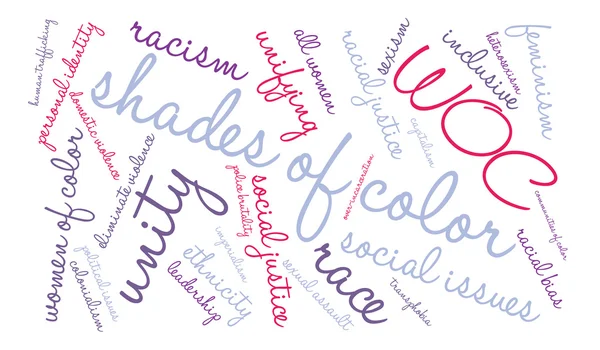 human trafficking
personal identity
racism
unifying
all women
racial justice
sexism
WOC
inclusive
heterosexism
feminism
domestic violence
shades of color
capitalism
women of color
diminate violence
unity
police brutality
social justice
over-incarceration
communities of color
political issues
colonialism
imperialism
ethnicity
leadership
sexual assault
race
social issues
transphobia
racial bias